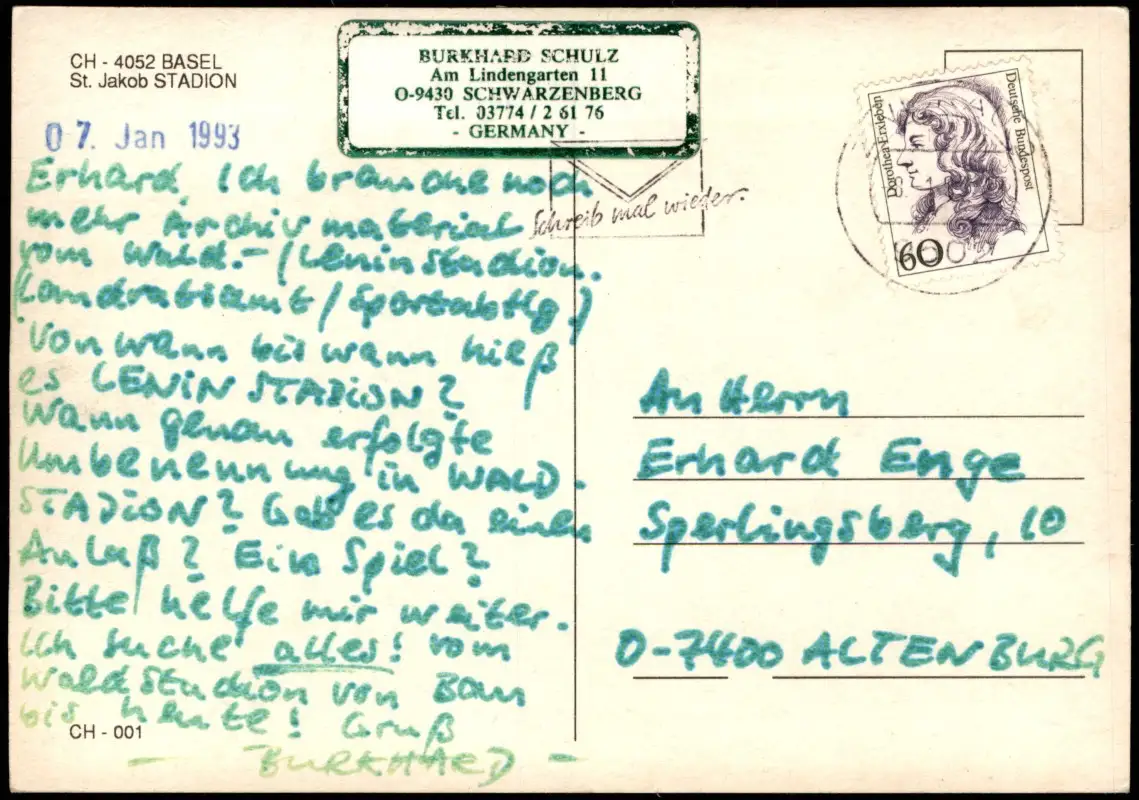 CH - 4052 BASEL
St. Jakob STADION
BURKHARD SCHULZ
Am Lindengarten 11
O-9430 SCHWARZENBERG
Tel. 03774 / 2 61 76
- GERMANY -
07. Jan 1993
Erhard, Ich brauche noch
mehr Archivmaterial
vom Wald.- / Leninstadion.
(Landratsamt / Sportabtlg.)
Von wann bis wann hieß
es LENIN STADION?
Wann genau erfolgte
Umbenennung in WALD-
STADION? Gab es da einen
Anlaß? Ein Spiel?
Bitte helfe mir weiter.
Ich suche alles! vom
Waldstadion von Bau
bis heute! Gruß
- BURKHARD -
CH - 001
Schreib mal wieder.
Deutsche Bundespost
Dorothea Erxleben
60
An Herrn
Erhard Enge
Sperlingsberg, 10
O-7400 ALTENBURG